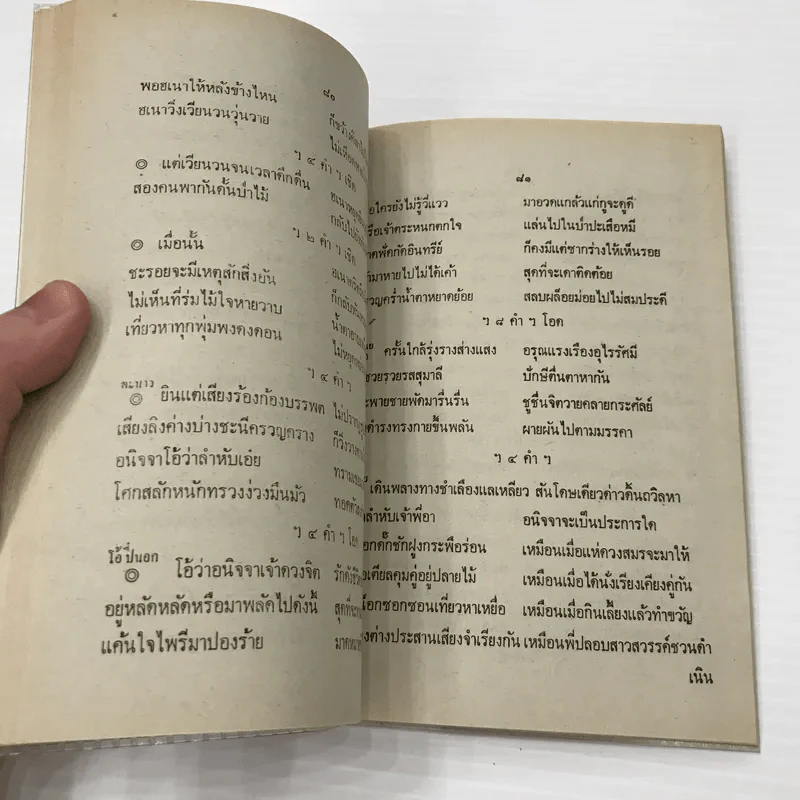 ๘๐
พอฮเนาให้หลังข้างไหน
ฮเนาวิ่งเวียนวนวุ่นวาย
ฯ ๔ คำ ฯ เชิด
๏ แต่เวียนวนจนเวลาดึกดื่น
สองคนพากันดั้นป่าไม้
ฯ ๒ คำ ฯ เชิด
๏ เมื่อนั้น
ชะรอยจะมีเหตุสักสิ่งอัน
ไม่เห็นที่ร่มไม้ใจหายวาบ
เที่ยวหาทุกพุ่มพงดงดอน
ฯ ๔ คำ ฯ
๏ ยินแต่เสียงร้องก้องบรรพต
เสียงลิงค่างบ่างชะนีครวญคราง
อนิจจาโอ้ว่าลำหับเอ๋ย
โศกสลักหนักทรวงง่วงมึนมัว
ฯ ๔ คำ ฯ โอด
โอ้ปี่นอก
๏ โอ้ว่าอนิจจาเจ้าดวงจิต
อยู่หลัดหลัดหรือมาพลัดไปดังนี้
แค้นใจไพรีมาปองร้าย
๘๑
ใครยังไม่รู้วี่แวว มาอวดแกล้วแก่กูจะดูดี
เจ้าตระหนกตกใจ แล่นไปในป่าปะเสือหมี
พัดกัดอินทรีย์ ก็คงมีแต่ซากร่างให้เห็นรอย
มาหายไปไม่ได้เค้า สุดที่จะเดาคิดต้อย
คร่ำน้ำตาหยดย้อย สลบผล็อยม่อยไปไม่สมประดี
ฯ ๘ คำ ฯ โอด
ครั้นใกล้รุ่งรางส่างแสง อรุณแรงเรืองอุไรรัศมี
รวยรสสุมาลี ปักษีตื่นตาหากัน
พายชายพัดมารื่นรื่น ชูชื่นจิตวายคลายกระศัลย์
ดำรงทรงกายขึ้นพลัน ผายผันไปตามมรรคา
ฯ ๔ คำ ฯ
เดินพลางทางชำเลืองแลเหลียว สันโดษเดียวด่าวดิ้นถวิลหา
ลำหับเจ้าพี่อา อนิจจาจะเป็นประการใด
ชักฝูงกระพือร่อน เหมือนเมื่อแห่ดวงสมรจะมาให้
คุมคู่อยู่ปลายไม้ เหมือนเมื่อได้นั่งเรียงเคียงคู่กัน
ซอกซอนเที่ยวหาเหยื่อ เหมือนเมื่อกินเลี้ยงแล้วทำขวัญ
ต่างประสานเสียงจำเรียงกัน เหมือนพี่ปลอบสาวสวรรค์ชวนดำ
เนิน